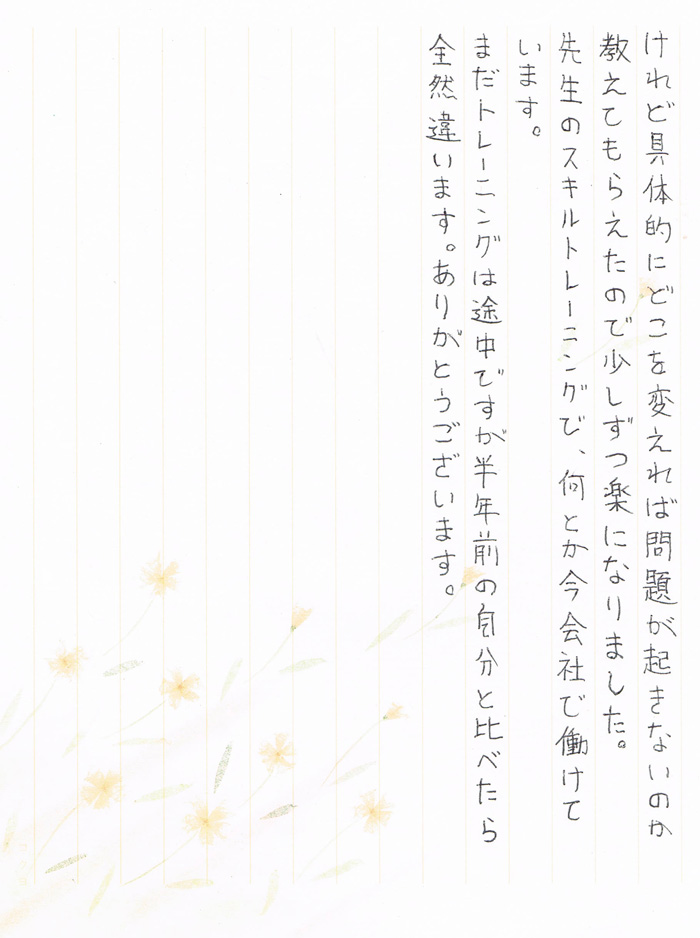 けれど具体的にどこを変えれば問題が起きないのか
教えてもらえたので少しずつ楽になりました。
先生のスキルトレーニングで、何とか今会社で働けて
います。
まだトレーニングは途中ですが半年前の自分と比べたら
全然違います。ありがとうございます。